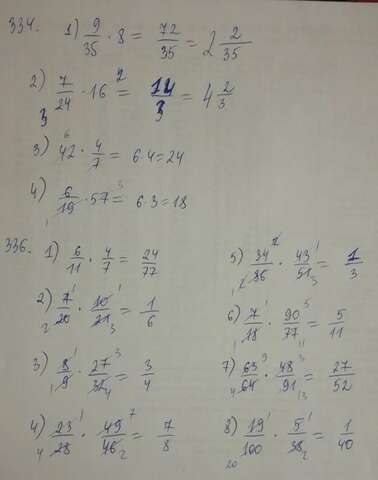 334. 1) 9/35 · 8 = 72/35 = 2 2/35
2) 7/24 · 16 = 14/3 = 4 2/3
3) 42 · 4/7 = 6·4=24
4) 6/19 · 57 = 6·3=18
336. 1) 6/11 · 4/7 = 24/77
2) 7/20 · 10/21 = 1/6
3) 8/9 · 27/32 = 3/4
4) 23/28 · 49/46 = 7/8
5) 34/86 · 43/51 = 1/3
6) 7/18 · 90/77 = 5/11
7) 63/64 · 48/91 = 27/52
8) 19/100 · 5/38 = 1/40